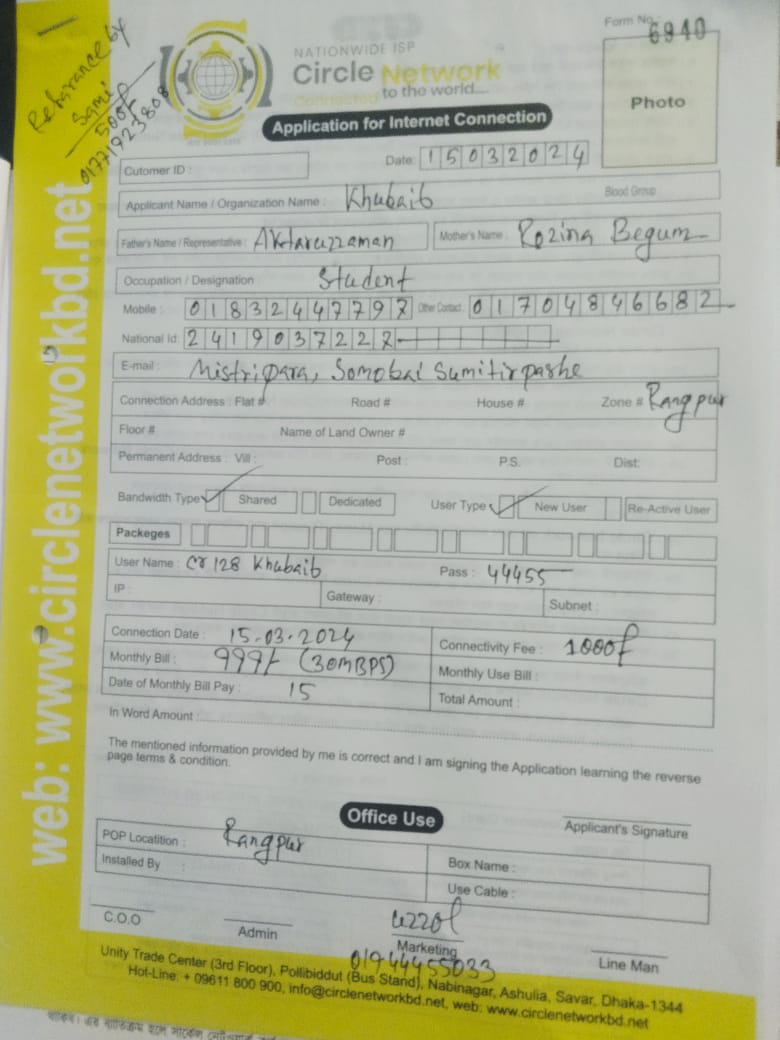 Referance by
Sami
500৳
01771923808
Form No. 6940
NATIONWIDE ISP
Circle Network
Connected to the world....
Photo
Application for Internet Connection
Cutomer ID :
Date: 15032024
Applicant Name / Organization Name : Khubaib
Blood Group
Father's Name / Representative : Aktaruzzaman
Mother's Name : Rozina Begum
Occupation / Designation Student
Mobile : 01832447797 Other Contact : 01704846682
National Id: 2419037227
E-mail : Mistripara, Somobai Sumitir pashe
Connection Address : Flat # Road # House # Zone # Rangpur
Floor # Name of Land Owner #
Permanent Address : Vill : Post : P.S. Dist:
Bandwidth Type Shared Dedicated User Type New User Re-Active User
Packeges
User Name : cr128 Khubaib Pass : 44455
IP : Gateway : Subnet :
Connection Date : 15-03-2024 Connectivity Fee : 1000৳
Monthly Bill : 999/- (30MBPS) Monthly Use Bill :
Date of Monthly Bill Pay : 15 Total Amount :
In Word Amount :
The mentioned information provided by me is correct and I am signing the Application learning the reverse
page terms & condition.
Applicant's Signature
Office Use
POP Locatition : Rangpur
Installed By : Box Name :
Use Cable :
uzzol
C.O.O Admin Marketing Line Man
01944455033
Unity Trade Center (3rd Floor), Pollibiddut (Bus Stand), Nabinagar, Ashulia, Savar, Dhaka-1344
Hot-Line: + 09611 800 900, info@circlenetworkbd.net, web: www.circlenetworkbd.net
web: www.circlenetworkbd.net